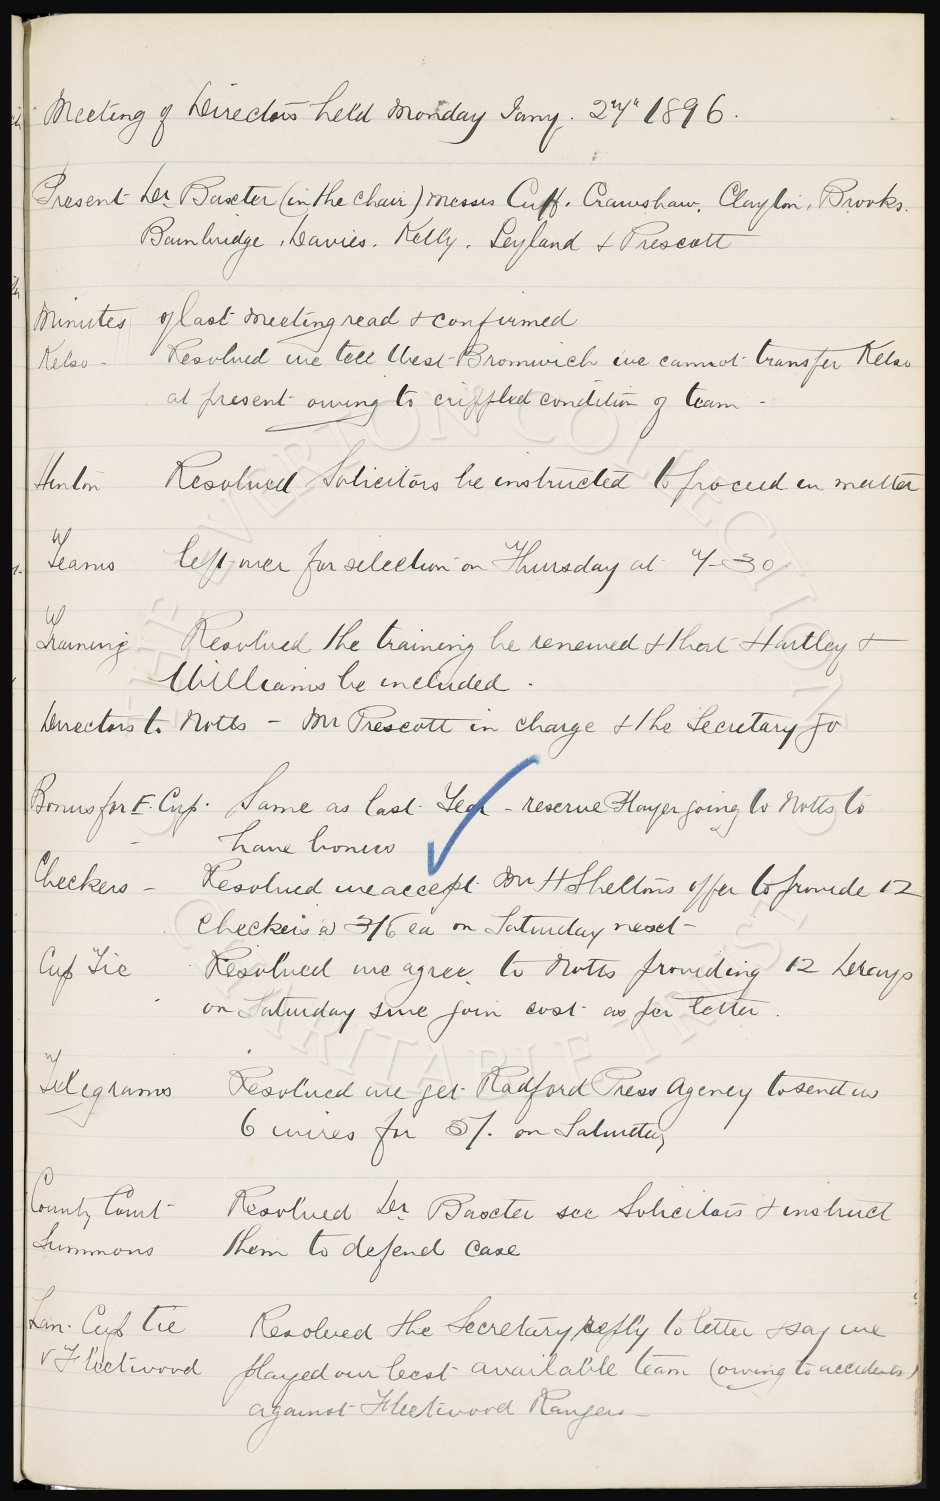 Meeting of Directors held Monday Jany. 27th 1896.
Present Dr Baxter (in the chair) Messrs Cuff, Crawshaw, Clayton, Brooks.
Bainbridge, Davies. Kelly. Leyland & Prescott
Minutes of last meeting read & confirmed
Kelso - Resolved we tell West Bromwich we cannot transfer Kelso
at present owing to crippled condition of team -
Hinton Resolved Solicitors be instructed to proceed in matter
Teams left over for selection on Thursday at 7-30.
Training Resolved the training be renewed & that Hartley &
Williams be included.
Directors to Notts - Mr Prescott in charge & the Secretary go
Bonus for E. Cup. Same as last Year - reserve Player going to Notts to
have bonus
Checkers - Resolved we accept Mr H Shelton's offer to provide 12
checkers @ 3/6 ea on Saturday next -
Cup Tie Resolved we agree to Notts providing 12 Drays
on Saturday & we join cost as per letter.
Telegrams Resolved we get Radford Press Agency to send us
6 wires for 5/. on Saturday
County Court Resolved Dr Baxter see Solicitors & instruct
Summons them to defend case
Lan. Cup tie Resolved the Secretary reply to letter & say we
v Fleetwood played our best available team (owing to accidents)
against Fleetwood Rangers -
THE EVERTON COLLECTION
CHARITABLE TRUST